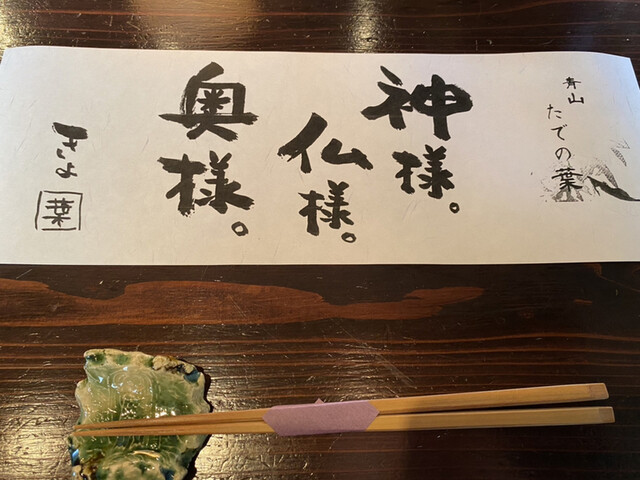 青山
たでの葉
神様。
仏様。
奥様。
きよ
葉